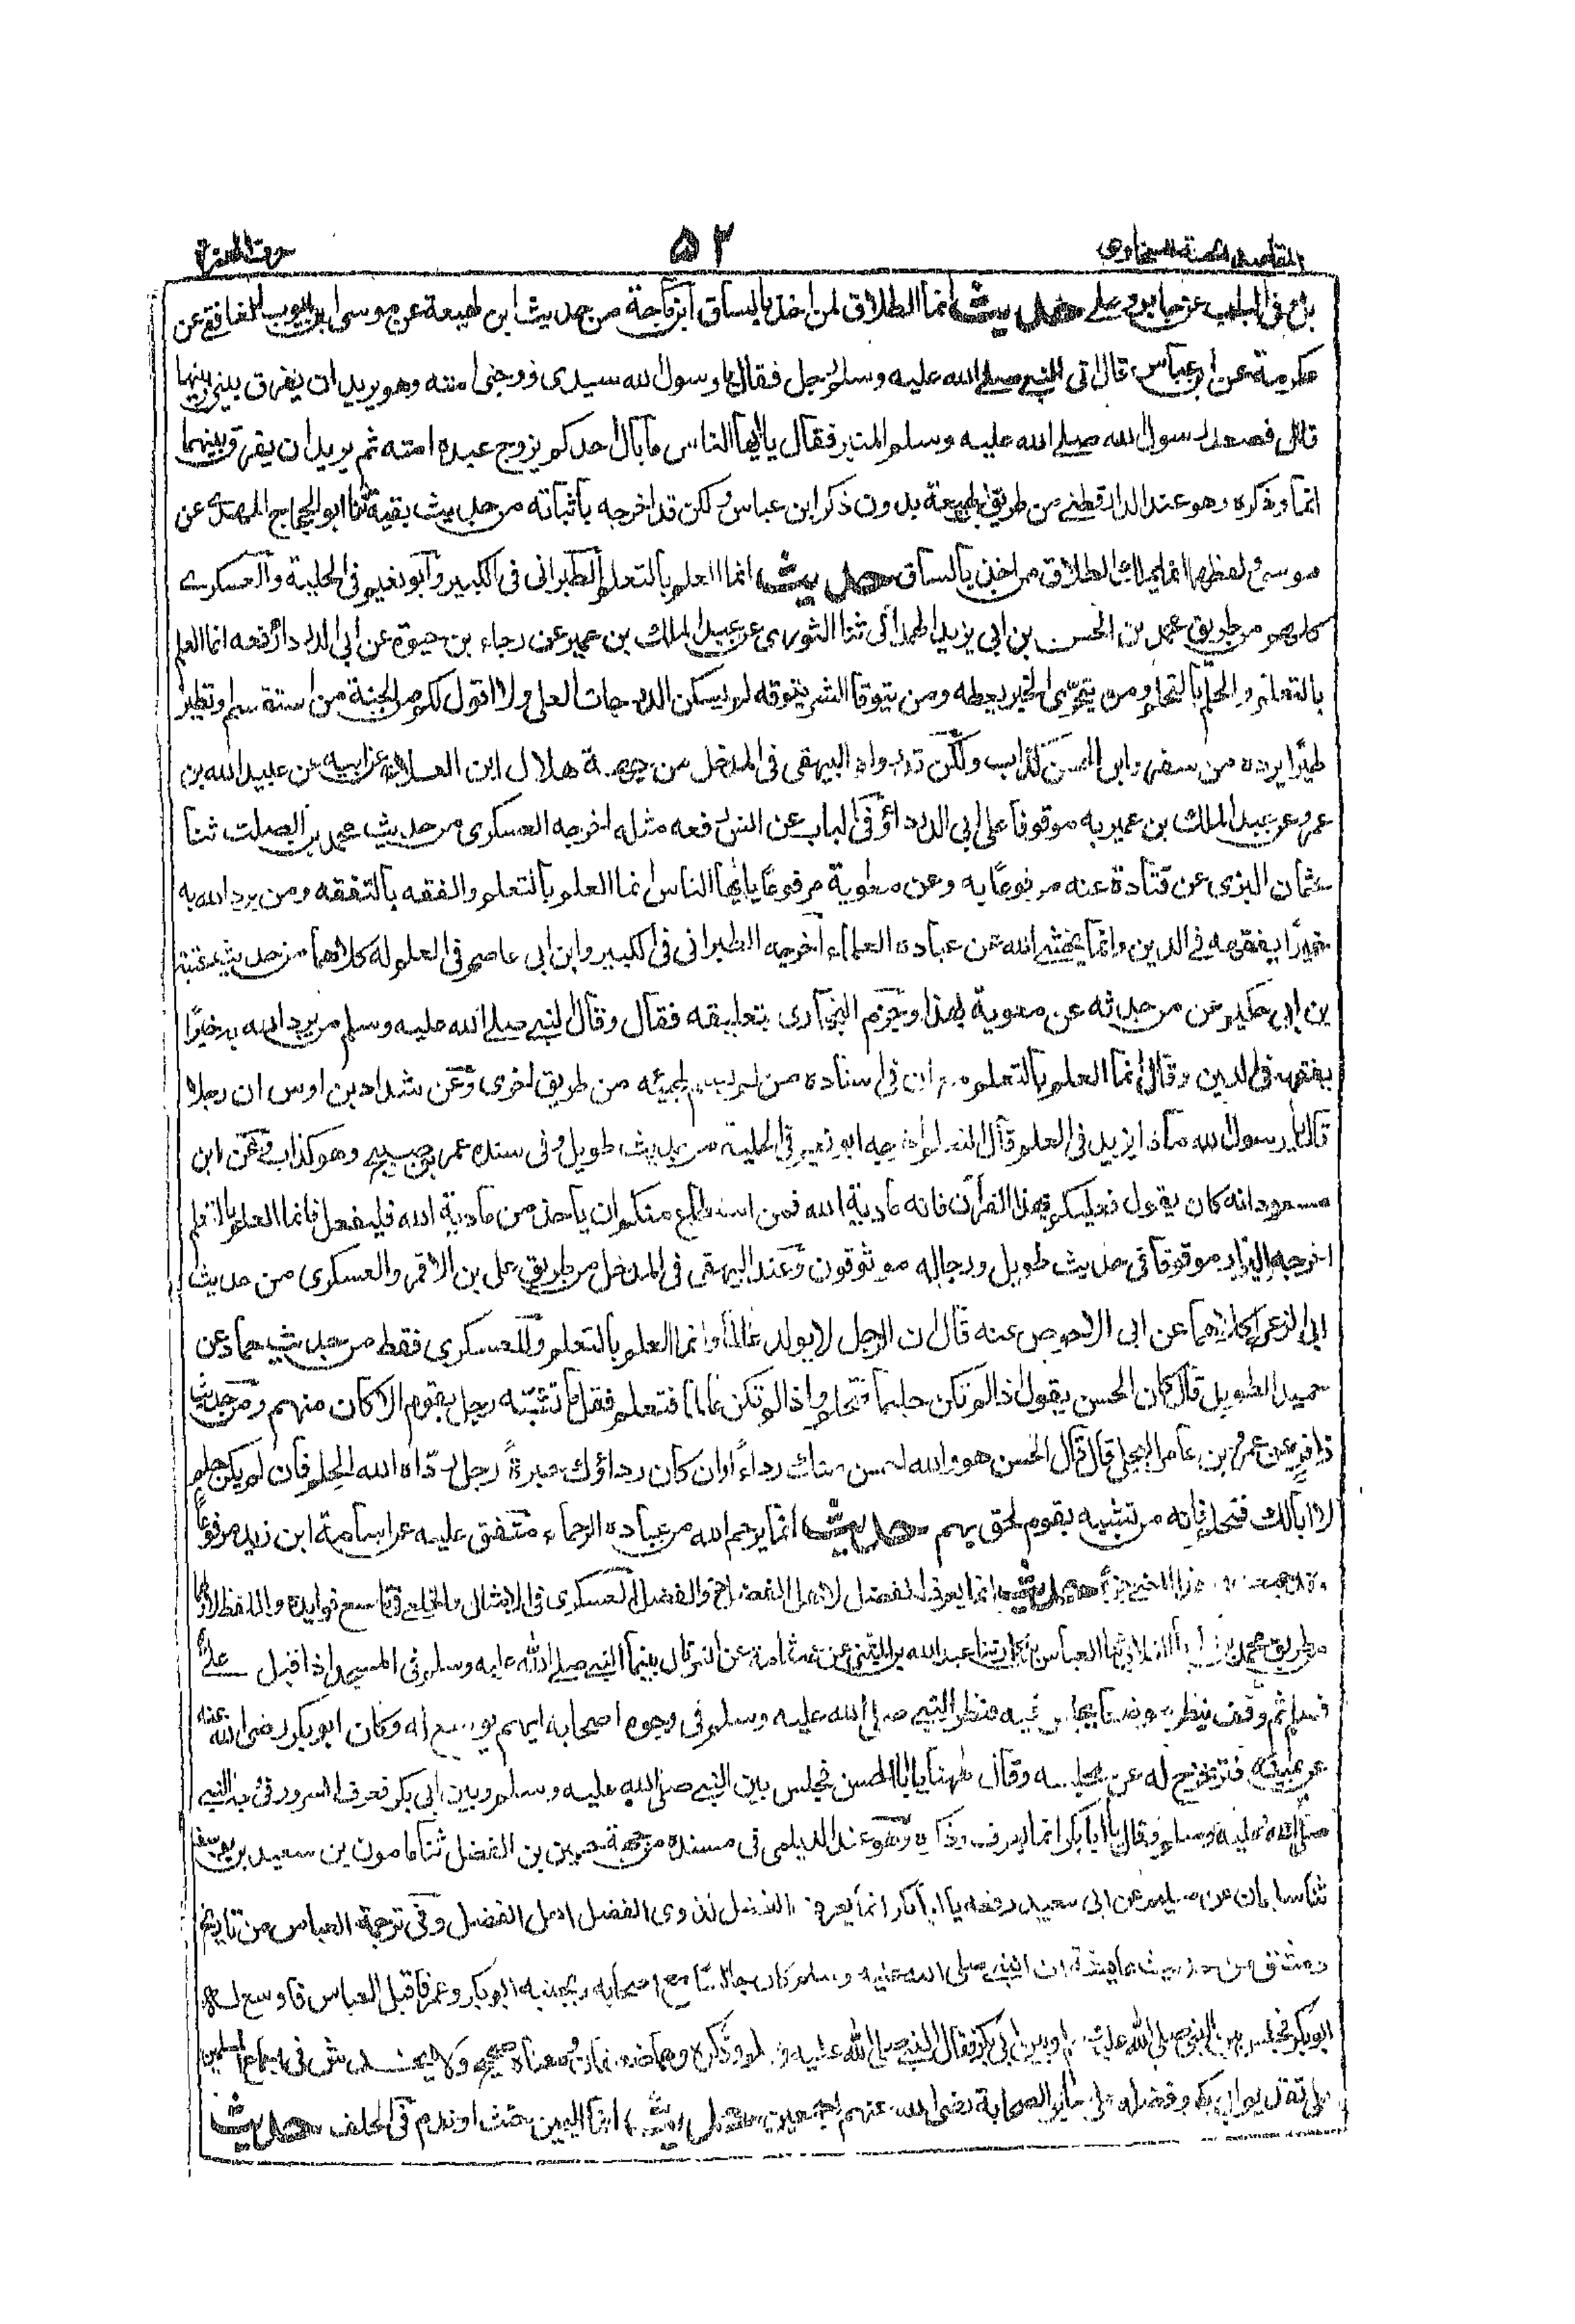 المقاصد الحسنة للسخاوى
۵۲
حرف الهمزة
وفى الباب عن جابر وعلى حديث انما الطلاق لمن اخذ بالساق ابن ماجة من حديث ابن لهيعة عن موسى ابن ايوب الغافقى عن
عكرمة عن ابن عباس قال اتى النبى صلى الله عليه وسلم رجل فقال يا رسول الله سيدى زوجنى امته وهو يريد ان يفرق بينى وبينها
قال فصعد رسول الله صلى الله عليه وسلم المنبر فقال يا ايها الناس ما بال احدكم يزوج عبده امته ثم يريد ان يفرق بينهما
انما وذكره وهو عند الدارقطنى من طريق ابن لهيعة بدون ذكر ابن عباس ولكن قد اخرجه باثباته من حديث بقية ثنا ابو الحجاج المهدى عن
موسى لفظه انما يملك الطلاق من اخذ بالساق حديث انما العلم بالتعلم الطبرانى فى الكبير وابو نعيم فى الحلية والعسكرى
كلهم من طريق محمد بن الحسن بن ابى يزيد الهمدانى ثنا الثورى عن عبد الملك بن عمير عن رجاء بن حيوة عن ابى الدرداء رفعه انما العلم
بالتعلم والحلم بالتحلم ومن يتحرى الخير يعطه ومن يتوقا الشر يتوقه لم يسكن الدرجات العلى ولا اقول لكم من الجنة من استقسم او تطير
طيرًا يرده من سفر وابن الحسن كذاب ولكن قد رواه البيهقى فى المدخل من جهة هلال ابن العلاء عن ابيه عن عبيد الله بن
عمرو عن عبد الملك بن عمير به موقوفا على ابى الدرداء وفى الباب عن انس رفعه مثله اخرجه العسكرى من حديث محمد بن الصلت ثنا
عثمان البرى عن قتادة عنه مرفوعًا به وعن معاوية مرفوعًا يا ايها الناس انما العلم بالتعلم والفقه بالتفقه ومن يرد الله به
خيرًا يفقهه فى الدين وانما يخشى الله من عباده العلماء اخرجه الطبرانى فى الكبير وابن ابى عاصم فى العلم له كلاهما من حديث عتبة
بن ابى حكيم عن من حدثه عن معوية بهذا وجزم البخارى بتعليقه فقال وقال النبى صلى الله عليه وسلم من يرد الله به خيرًا
يفقهه فى الدين وقال انما العلم بالتعلم ان فى اسناده من لم لمجيئه من طريق اخرى وعن شداد بن اوس ان رجلا
قال يا رسول الله ماذا يزيد فى العلم قال التعلم اخرجه ابو نعيم فى الحلية من حديث طويل وفى سنده عمر بن صبيح وهو كذاب وعن ابن
مسعود انه كان يقول فعليكم بهذا القرآن فانه مأدبة الله فمن استطاع منكم ان يأخذ من مأدبة الله فليفعل فانما العلم بالتعلم
اخرجه البزار موقوفا فى حديث طويل ورجاله موثوقون وعند البيهقى فى المدخل من طريق على بن الاقمر والعسكرى من حديث
ابى الزعراء كلاهما عن ابى الاحوص عنه قال ان الرجل لا يولد عالما وانما العلم بالتعلم وللعسكرى فقط من حديث حماد عن
حميد الطويل قال كان الحسن يقول اذا لم تكن حليما فتحلم واذا لم تكن عالما فتعلم فقل ما تشبه رجل بقوم الا كان منهم ومن حديث
زافر عن عمرو بن عامر البجلى قال قال الحسن هو والله احسن منك رداءً وان كان رداؤك حبرةً رجل ردّاه الله الحلم فان لم يكن حلم
لا ابا لك فتحلم فانه من تشبه بقوم لحق بهم حديث انما يرحم الله من عباده الرحماء متفق عليه عن اسامة ابن زيد مرفوعًا
هذا الحديث جزأ حديث انما يعرف الفضل لاهل الفضل اهل الفضل العسكرى فى الامثال والخلعى فى تاسع فوايده واللفظ لاولهما
من طريق محمد بن زكريا الغلابى ثنا العباس بن بكار ثنا عبد الله بن المثنى عن عمه ثمامة عن انس قال بينما النبى صلى الله عليه وسلم فى المسجد اذ اقبل على
فسلم ثم وقف ينظر موضعا يجلس فيه فنظر النبى صلى الله عليه وسلم فى وجوه اصحابه ايهم يوسع له وكان ابو بكر رضى الله عنه
عن يمينه فتزحزح له عن مجلسه وقال ههنا يا ابا الحسن فجلس بين النبى صلى الله عليه وسلم وبين ابى بكر فعرف السرور فى وجه النبى
صلى الله عليه وسلم وقال يا ابا بكر انما يعرف وذكره وهو عند الديلمى فى مسنده من جهة بن الفضل ثنا مامون بن سعيد بن يوسف
ثنا سليمان عن سليم عن ابى سعيد رفعه يا ابا بكر انما يعرف الفضل لذوى الفضل اهل الفضل وفى ترجمة العباس من تاريخ
دمشق من حديث عايشة ان النبى صلى الله عليه وسلم كان جالسًا مع اصحابه وبجنبه ابو بكر وعمر فاقبل العباس فاوسع له
ابو بكر فجلس بين النبى صلى الله عليه وسلم وبين ابى بكر فقال النبى صلى الله عليه وسلم وذكره وهما ضعيفان ومعناه صحيح ولا يخدش فى اجماع المسلمين
على تقديم ابى بكر وفضله على سائر الصحابة رضى الله عنهم اجمعين حديث انما اليمين حنث او ندم فى الحلف حديث